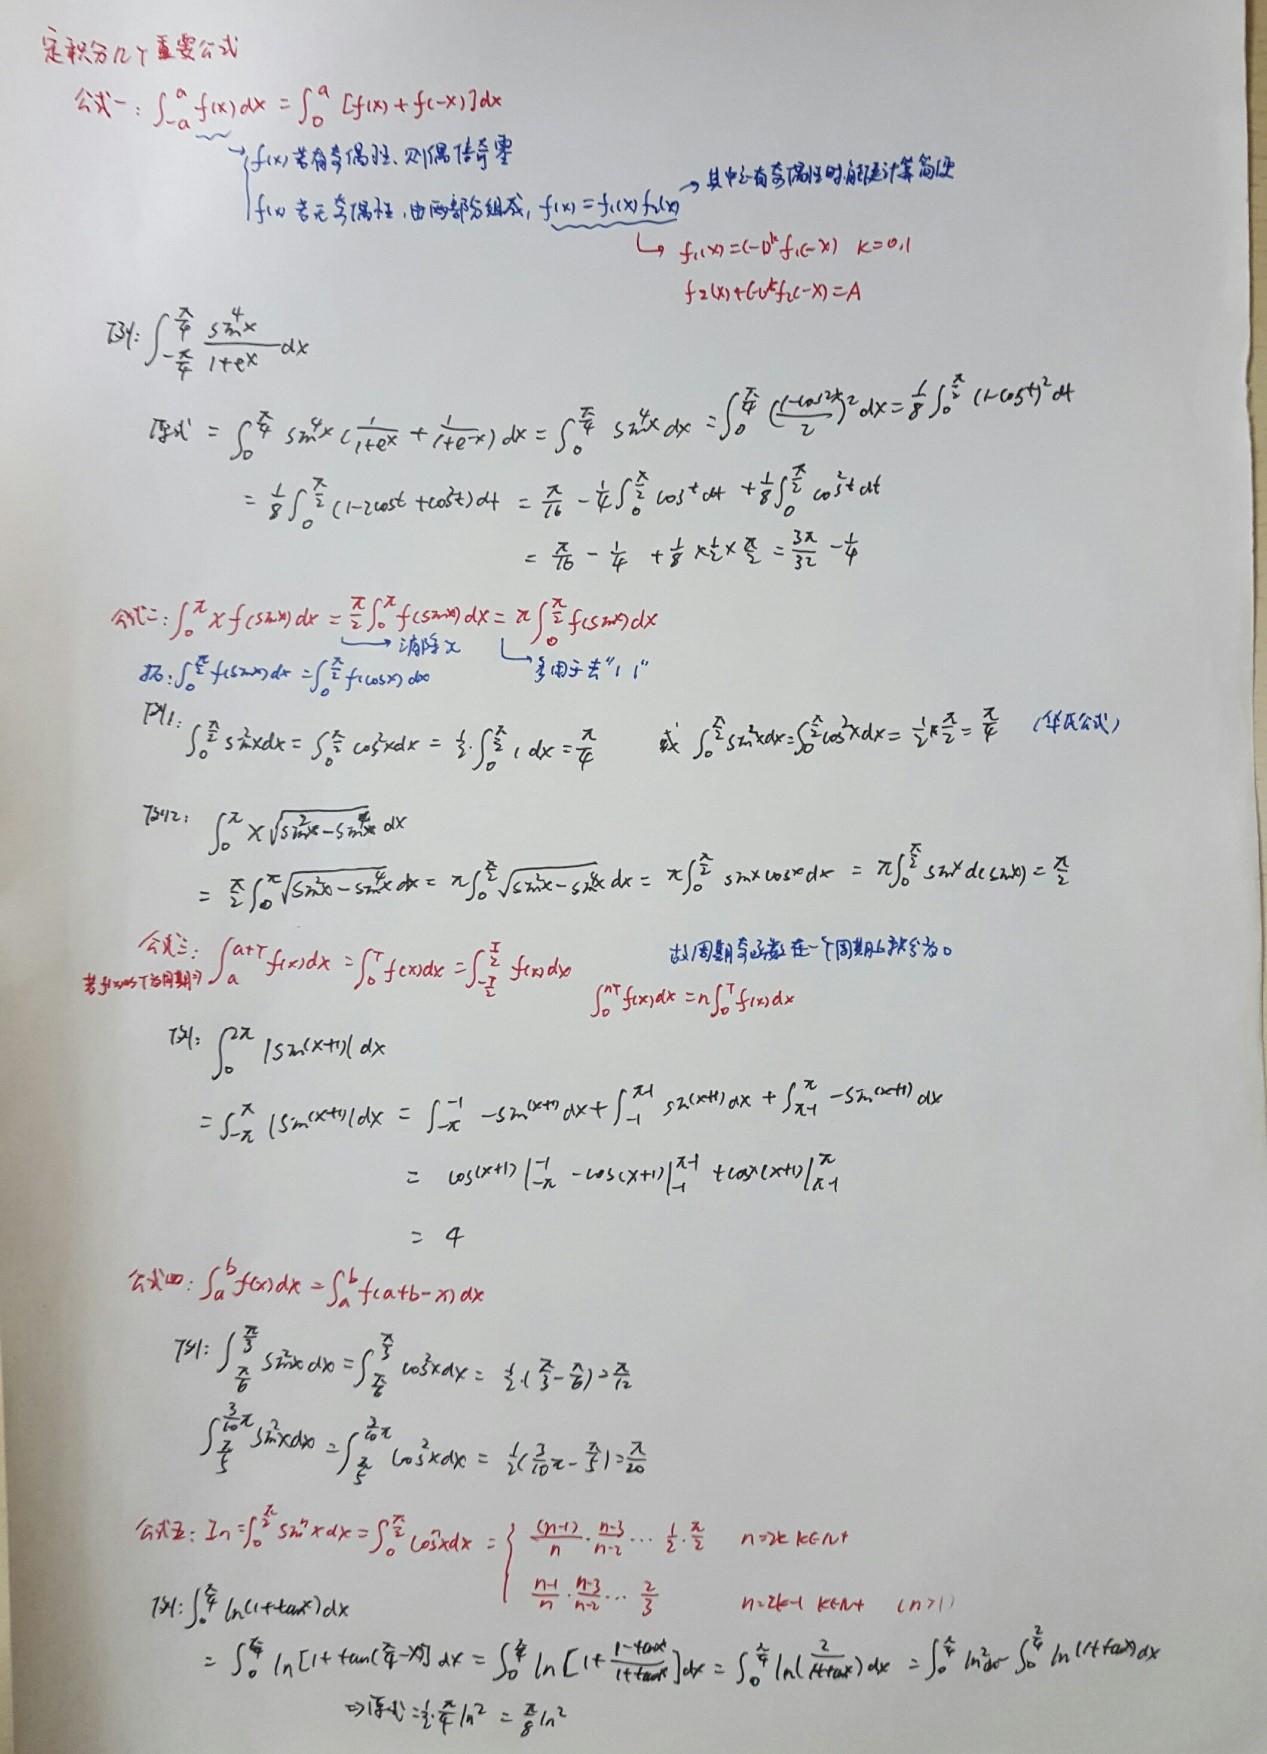 定积分几个重要公式
公式一: ∫_{-a}^{a} f(x)dx = ∫_0^a [f(x)+f(-x)]dx
f(x)若有奇偶性、则偶倍奇零
f(x)若无奇偶性,由两部分组成, f(x)=f₁(x)f₂(x) → 其中之有奇偶性时,能使计算简便
f₁(x)=(-1)^k f₁(-x) k=0,1
f₂(x)+(-1)^k f₂(-x)=A
例: ∫_{-π/4}^{π/4} sin⁴x/(1+e^x) dx
原式 = ∫_0^{π/4} sin⁴x (1/(1+e^x) + 1/(1+e^{-x})) dx = ∫_0^{π/4} sin⁴x dx = ∫_0^{π/4} ((1-cos2x)/2)² dx = 1/8 ∫_0^{π/2} (1-cost)² dt
= 1/8 ∫_0^{π/2} (1-2cost+cos²t)dt = π/16 - 1/4 ∫_0^{π/2} cost dt + 1/8 ∫_0^{π/2} cos²t dt
= π/16 - 1/4 + 1/8 × 1/2 × π/2 = 3π/32 - 1/4
公式二: ∫_0^π x f(sinx)dx = π/2 ∫_0^π f(sinx)dx = π ∫_0^{π/2} f(sinx)dx
→ 消除x
→ 多用于去"| |"
拓: ∫_0^{π/2} f(sinx)dx = ∫_0^{π/2} f(cosx)dx
例1: ∫_0^{π/2} sin²xdx = ∫_0^{π/2} cos²xdx = 1/2 · ∫_0^{π/2} 1 dx = π/4 或 ∫_0^{π/2} sin²xdx = ∫_0^{π/2} cos²xdx = 1/2 × π/2 = π/4 (华氏公式)
例2: ∫_0^π x √(sin²x-sin⁴x) dx
= π/2 ∫_0^π √(sin²x-sin⁴x) dx = π ∫_0^{π/2} √(sin²x-sin⁴x) dx = π ∫_0^{π/2} sinx cosx dx = π ∫_0^{π/2} sinx d(sinx) = π/2
公式三: ∫_a^{a+T} f(x)dx = ∫_0^T f(x)dx = ∫_{-T/2}^{T/2} f(x)dx 故周期奇函数在一个周期上积分为0
若f(x)以T为周期⇒
∫_0^{nT} f(x)dx = n ∫_0^T f(x)dx
例: ∫_0^{2π} |sin(x+1)| dx
= ∫_{-π}^{π} |sin(x+1)|dx = ∫_{-π}^{-1} -sin(x+1)dx + ∫_{-1}^{π-1} sin(x+1)dx + ∫_{π-1}^{π} -sin(x+1)dx
= cos(x+1)|_{-π}^{-1} - cos(x+1)|_{-1}^{π-1} + cos(x+1)|_{π-1}^{π}
= 4
公式四: ∫_a^b f(x)dx = ∫_a^b f(a+b-x)dx
例: ∫_{π/6}^{π/3} sin²xdx = ∫_{π/6}^{π/3} cos²xdx = 1/2·(π/3 - π/6) = π/12
∫_{π/5}^{3/10π} sin²xdx = ∫_{π/5}^{3/10π} cos²xdx = 1/2(3/10π - π/5) = π/20
公式五: In = ∫_0^{π/2} sinⁿxdx = ∫_0^{π/2} cosⁿxdx = { (n-1)/n · (n-3)/(n-2) ··· 1/2 · π/2 n=2k k∈N+
(n-1)/n · (n-3)/(n-2) ··· 2/3 n=2k-1 k∈N+ (n>1)
例: ∫_0^{π/4} ln(1+tanx)dx
= ∫_0^{π/4} ln[1+tan(π/4-x)] dx = ∫_0^{π/4} ln[1+(1-tanx)/(1+tanx)]dx = ∫_0^{π/4} ln(2/(1+tanx)) dx = ∫_0^{π/4} ln2dx - ∫_0^{π/4} ln(1+tanx)dx
⇒原式 = 1/2·π/4 ln2 = π/8 ln2